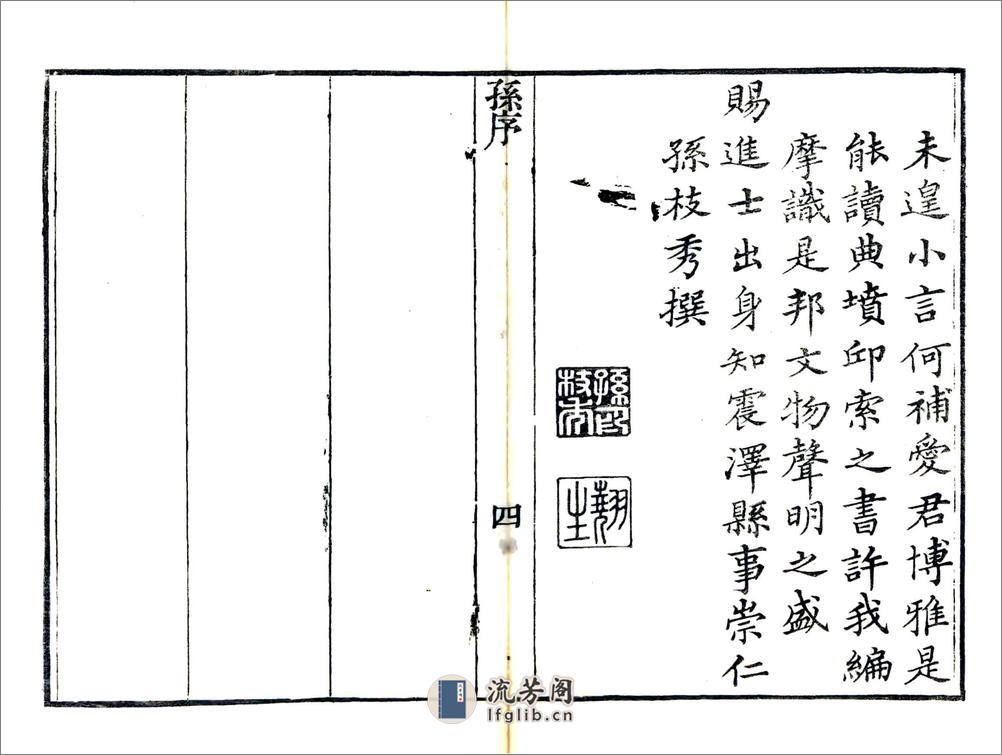 未遑小言何補愛君博雅是
能讀典墳邱索之書許我編
摩識是邦文物聲明之盛
賜進士出身知震澤縣事崇仁
孫枝秀撰
孫印枝秀
翔生
孫序
四
流芳阁
lfglib.cn